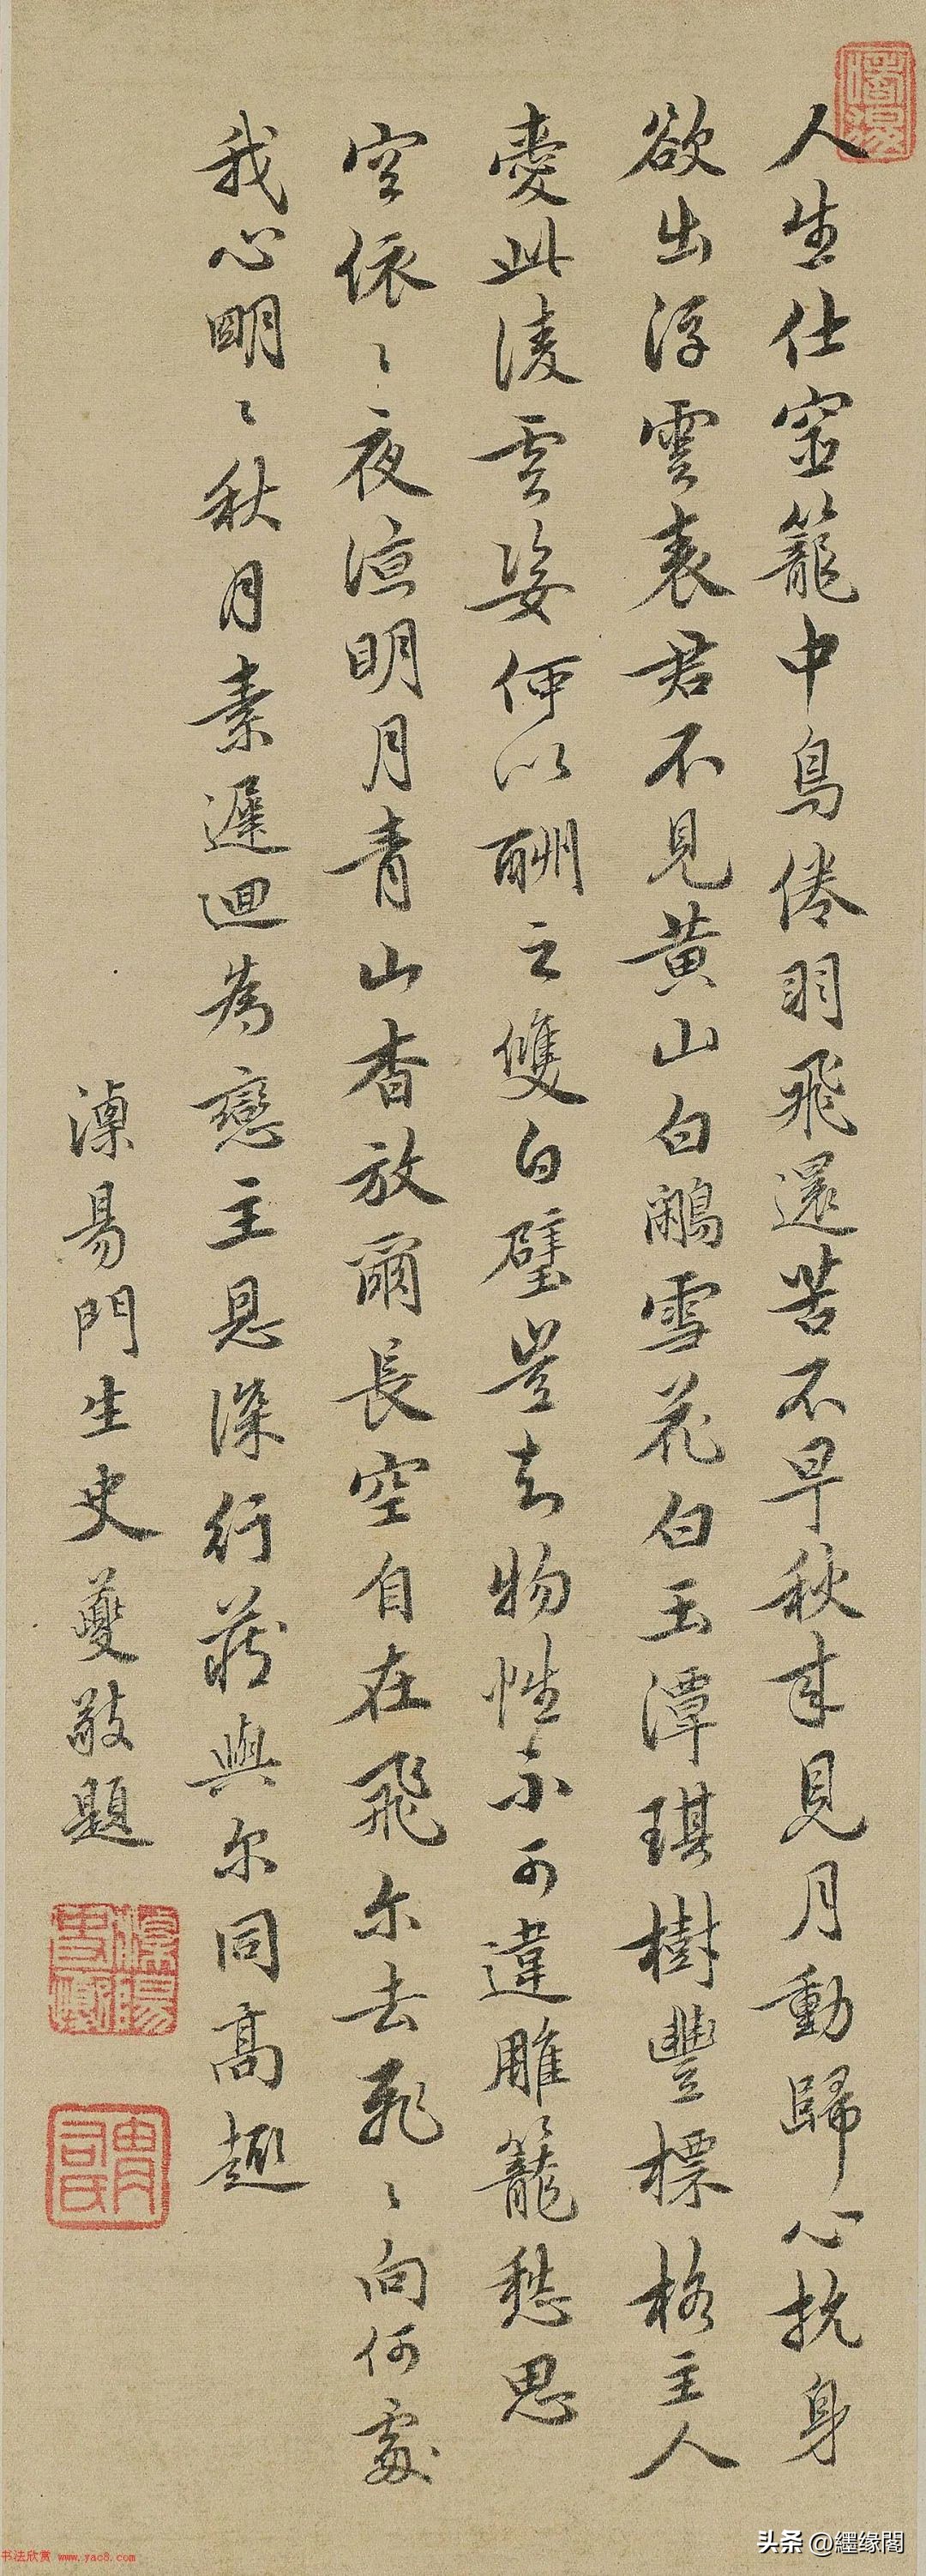 人生仕宦籠中鳥倦羽飛還苦不早秋來見月動歸心抗身
欲出浮雲表君不見黃山白鷳雪花白玉潭琪樹豐標格主人
愛此淩雲姿何以酬之雙白璧豈知物性不可違雕籠愁思
空依〻夜涼明月青山杳放爾長空自在飛尔去飛〻向何處
我心明〻秋月素遲迴為戀主恩深行藏與尔同高趣
溧昜門生史夔敬題
溧陽史夔
书法欣赏 www.yac8.com
头条 @纆缘閣